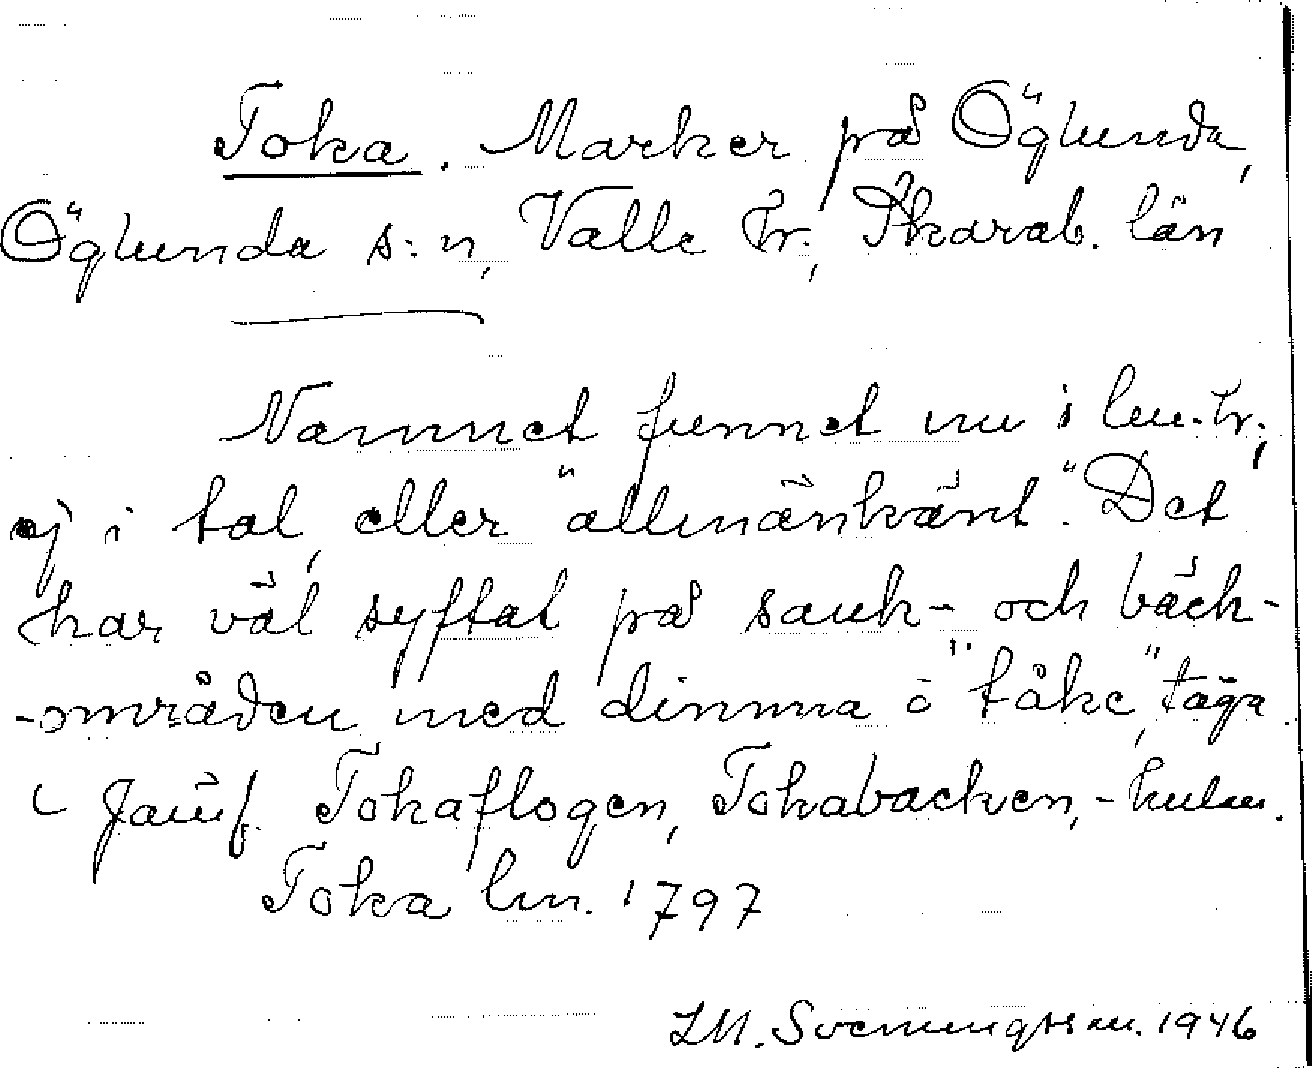 Toka. Marker på Öglunda,
Öglunda s:n, Valle hr., Skarab. län
Namnet funnet nu i lm.hr.,
ej i tal, eller "allmänkänt". Det
har väl syftat på sank- och bäck-
-områden med dimma o "tåke", tåga
Jämf. Tokaflogen, Tokabacken, -kulen.
Toka lm. 1797
LM. Svenungsson. 1946